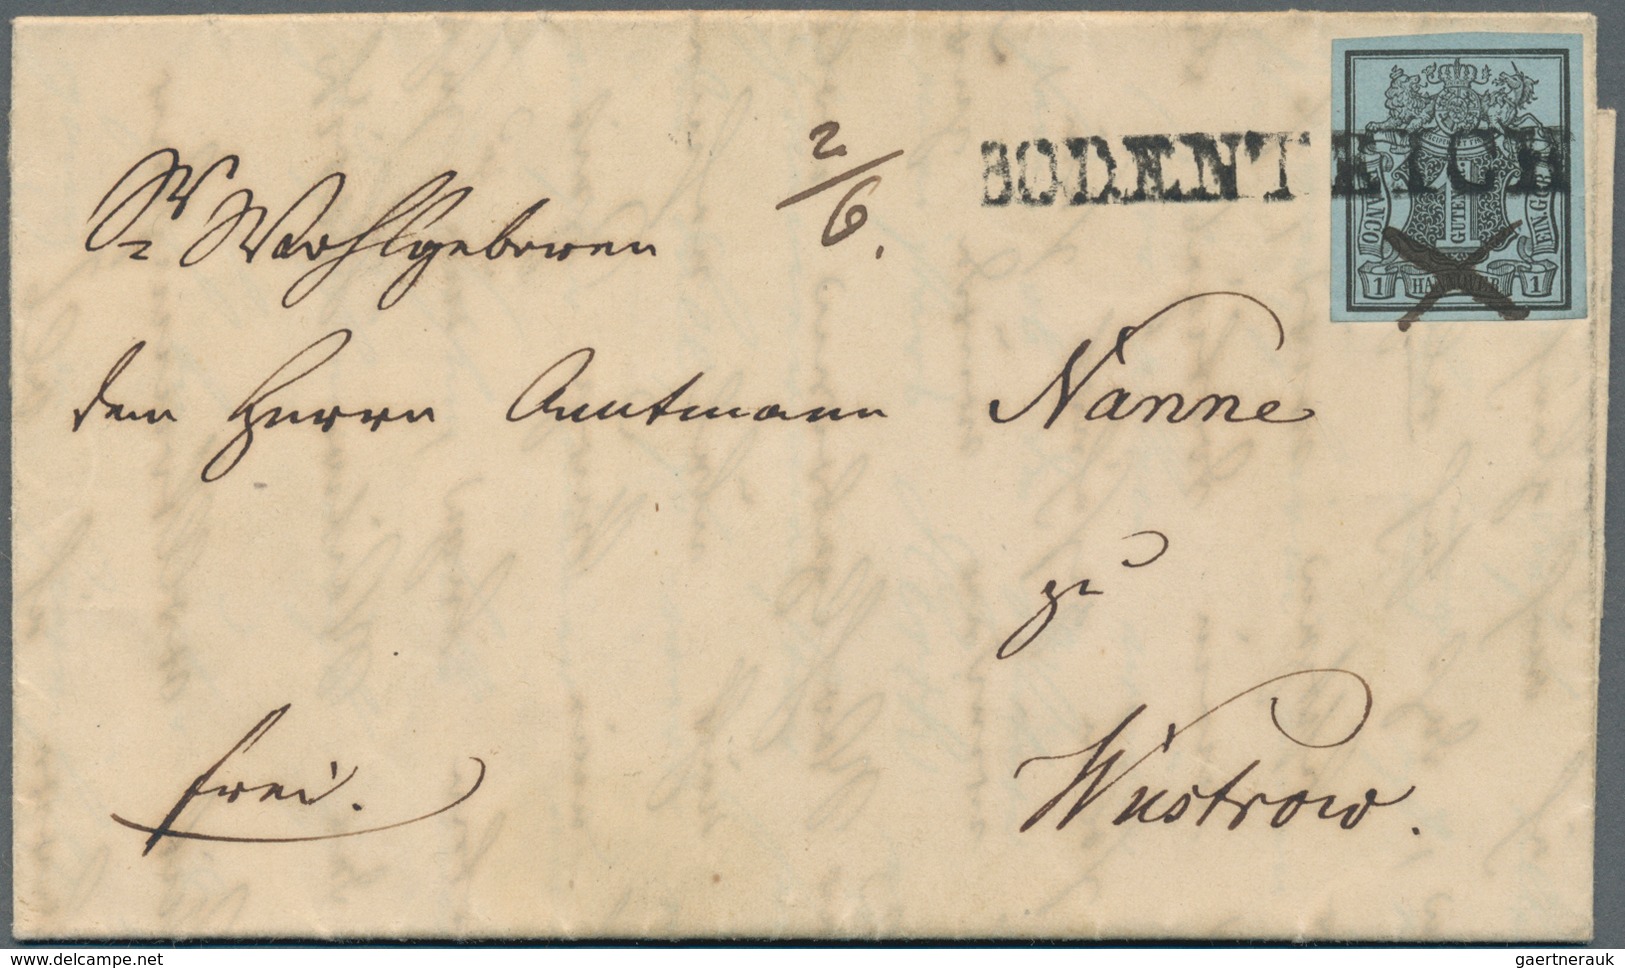 Sr Wohlgeboren
2/6.
BODENTEICH
FRANCO
1
GUTENGR
EIN.G.GR.
1 HANNOVER 1
dem Herrn Amtmann Nanne
zu
frei.
Wustrow.
www.delcampe.net
gaertnerauk